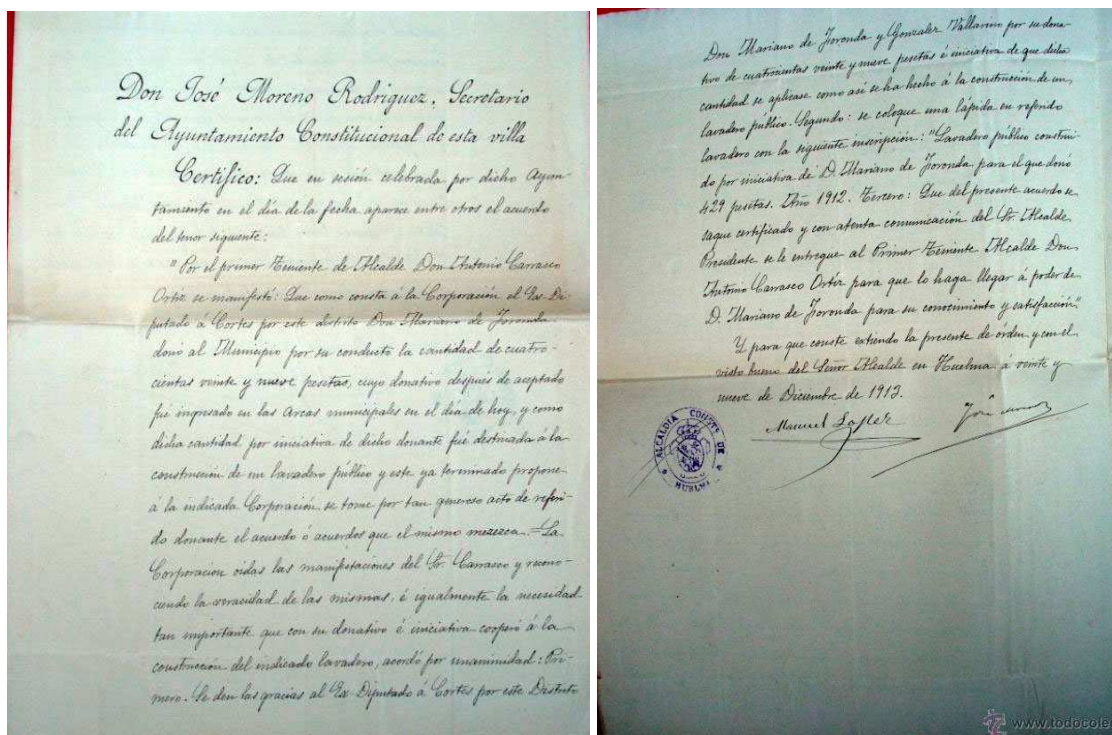 Don José Moreno Rodríguez, Secretario
del Ayuntamiento Constitucional de esta villa
Certifico: Que en sesión celebrada por dicho Ayun-
tamiento en el día de la fecha aparece entre otros el acuerdo
del tenor siguiente:
"Por el primer Teniente de Alcalde Don Antonio Carrasco
Ortiz se manifestó: Que como consta á la Corporación el Ex-Di-
putado á Cortes por este distrito Don Mariano de Foronda
donó al Municipio por su conducto la cantidad de cuatro-
cientas veinte y nueve pesetas, cuyo donativo después de aceptado
fué ingresado en las Arcas municipales en el día de hoy, y como
dicha cantidad por iniciativa de dicho donante fué destinada á la
construcción de un lavadero público y este ya terminado propone
á la indicada Corporación se tome por tan generoso acto de referi-
do donante el acuerdo ó acuerdos que el mismo merezca.=La
Corporación oidas las manifestaciones del Sr. Carrasco y recono-
ciendo la veracidad de las mismas, é igualmente la necesidad
tan importante que con su donativo é iniciativa cooperó á la
construcción del indicado lavadero, acordó por unanimidad: Pri-
mero. Se den las gracias al Ex-Diputado á Cortes por este Distrito
Don Mariano de Foronda y Gonzalez Vallarino por su dona-
tivo de cuatrocientas veinte y nueve pesetas é iniciativa de que dicha
cantidad se aplicase como así se ha hecho á la construcción de un
lavadero público. Segundo: se coloque una lápida en referido
lavadero con la siguiente inscripción: "Lavadero público construi-
do por iniciativa de D. Mariano de Foronda para el que donó
429 pesetas. Año 1912. Tercero: Que del presente acuerdo se
saque certificado y con atenta comunicación del Sr. Alcalde
Presidente se le entregue al Primer Teniente Alcalde Don
Antonio Carrasco Ortiz para que lo haga llegar á poder de
D. Mariano de Foronda para su conocimiento y satisfacción."
Y para que conste extiendo la presente de órden y con el
visto bueno del Señor Alcalde en Huelma á veinte y
nueve de Diciembre de 1913.
Manuel Lopez
José
ALCALDIA CONSTAL DE
HUELMA
www.todocole